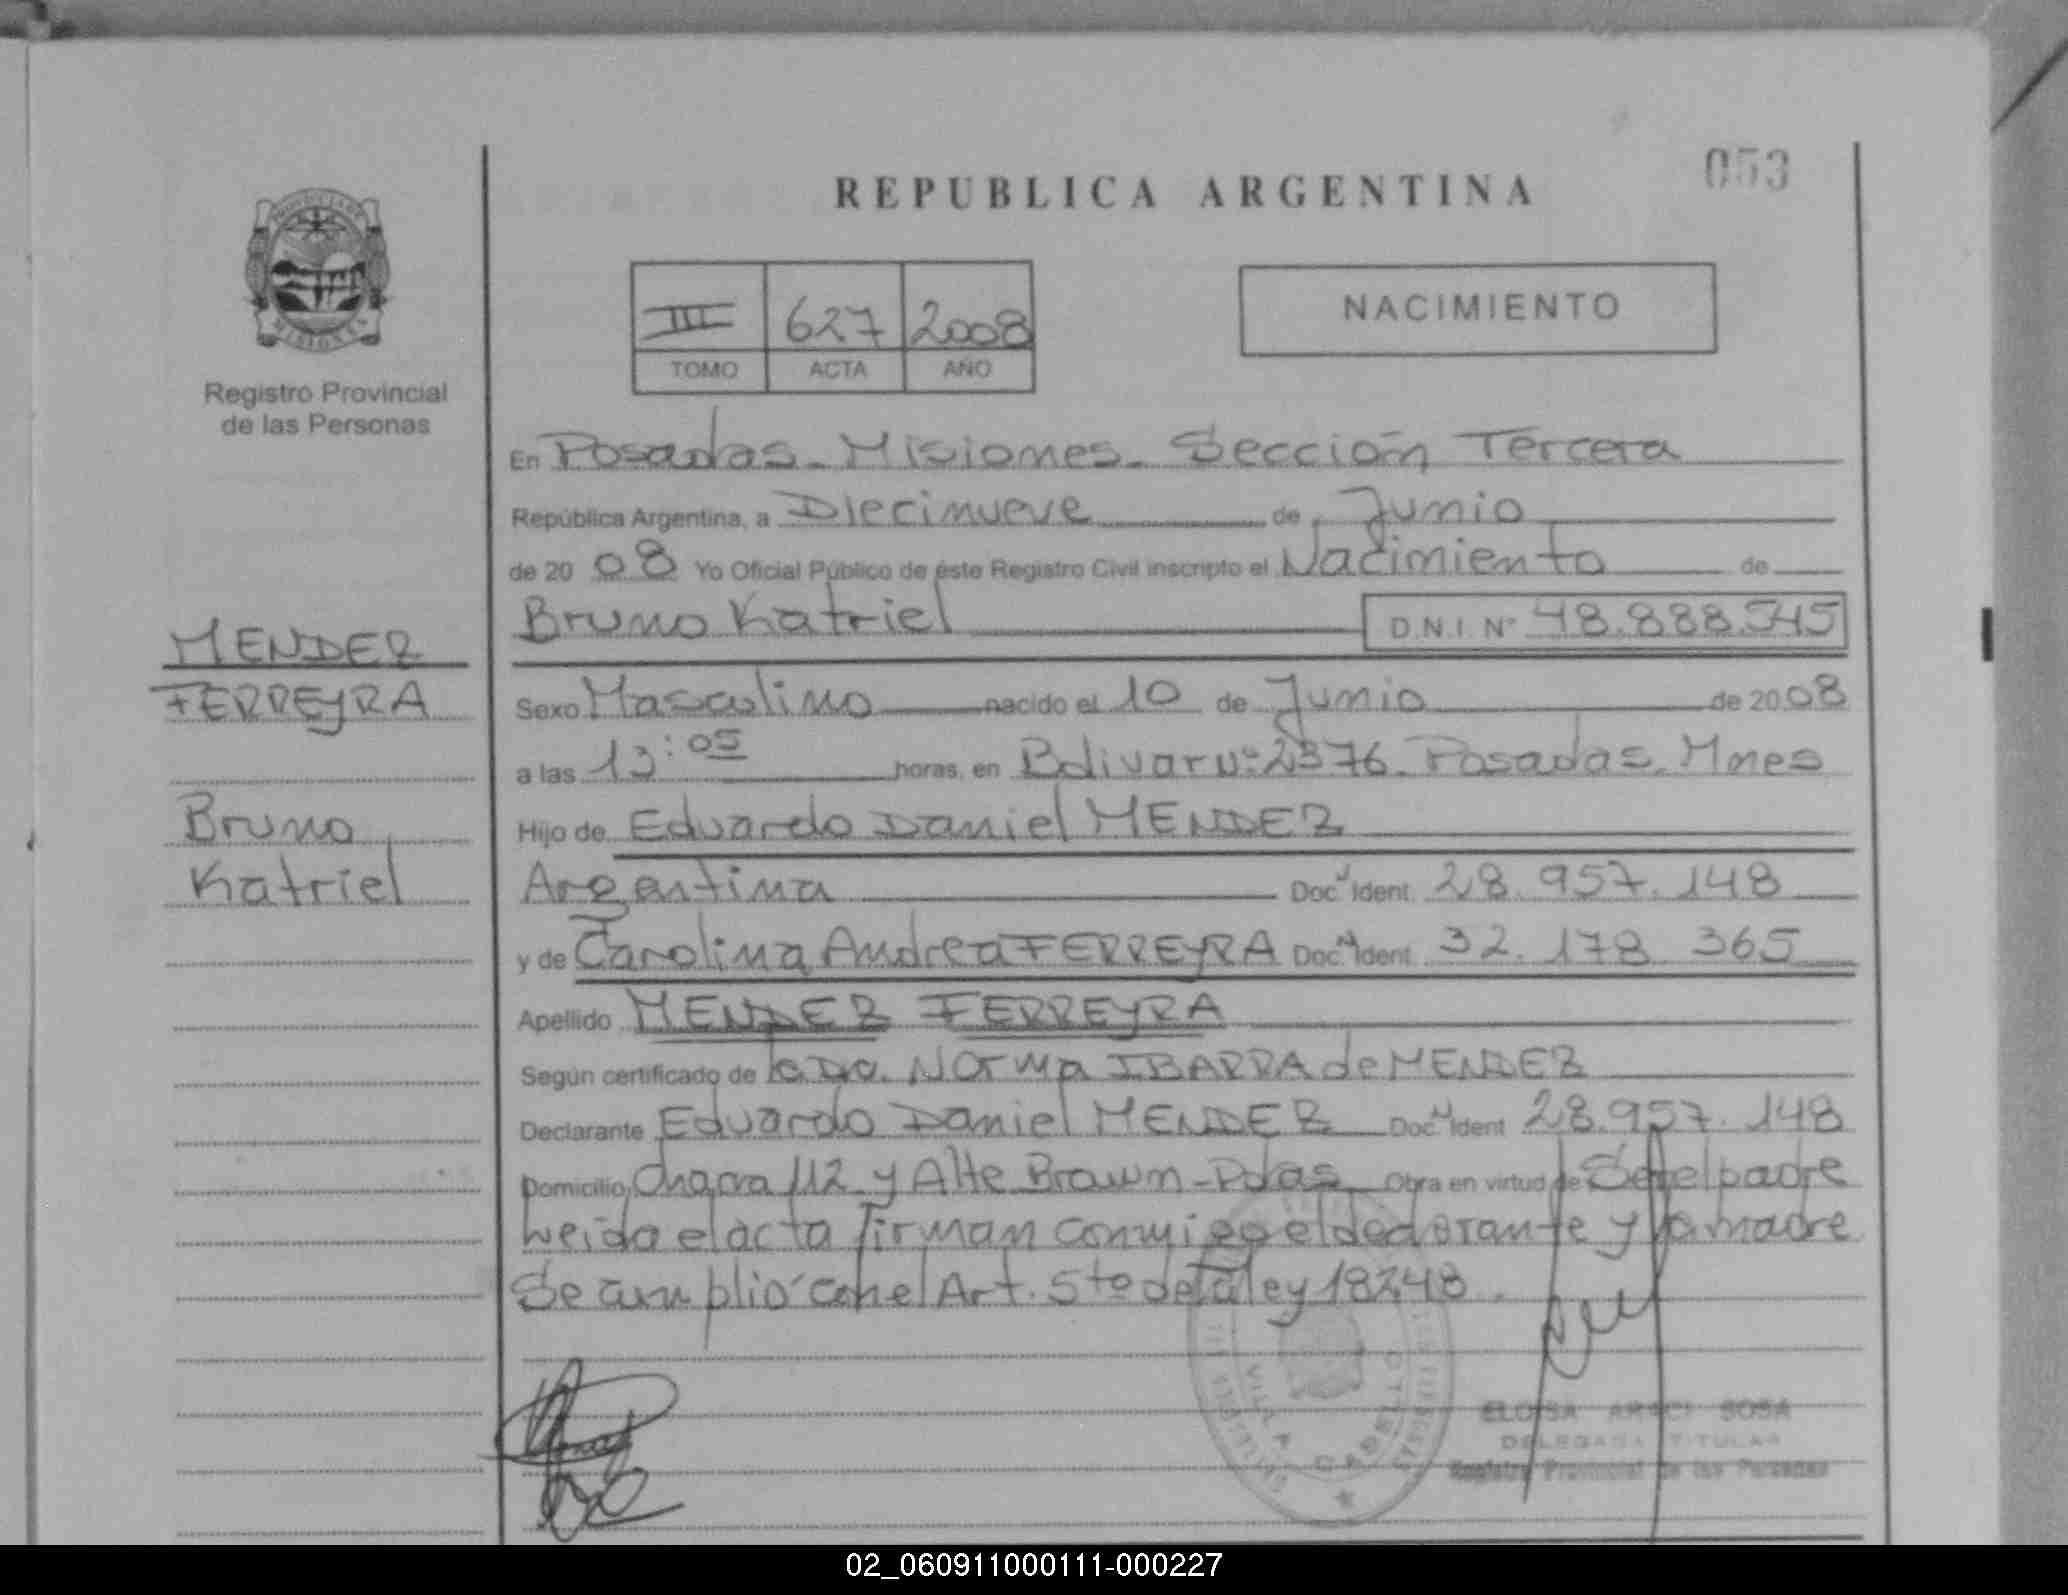 053
REPUBLICA ARGENTINA
PROVINCIA DE
MISIONES
Registro Provincial
de las Personas
III 627 2008
TOMO ACTA AÑO
NACIMIENTO
En Posadas - Misiones - Sección Tercera
República Argentina, a Diecinueve de Junio
de 20 08 Yo Oficial Público de éste Registro Civil inscripto el Nacimiento de
Bruno Katriel D.N.I. Nº 48.888.545
MENDEZ
FERREYRA
Bruno
Katriel
Sexo Masculino nacido el 10 de Junio de 20 08
a las 13:05 horas, en Bolivar Nº 2376 - Posadas - Mnes
Hijo de Eduardo Daniel MENDEZ
Argentina Doc. Ident. 28.957.148
y de Carolina Andrea FERREYRA Doc. Ident. 32.178 365
Apellido MENDEZ FERREYRA
Según certificado de la Dra. Norma IBARRA de MENDEZ
Declarante Eduardo Daniel MENDEZ Doc. Ident 28.957.148
Domicilio Chacra 112 y Alte Brown - Pdas Obra en virtud de Ser el padre
Leida el acta firman conmigo el declarante y la madre
Se cumplió con el Art. 5to de la ley 18248.
VILLA CABELLO
ELOISA ARECI SOSA
DELEGADA TITULAR
Registro Provincial de las Personas
02_060911000111-000227